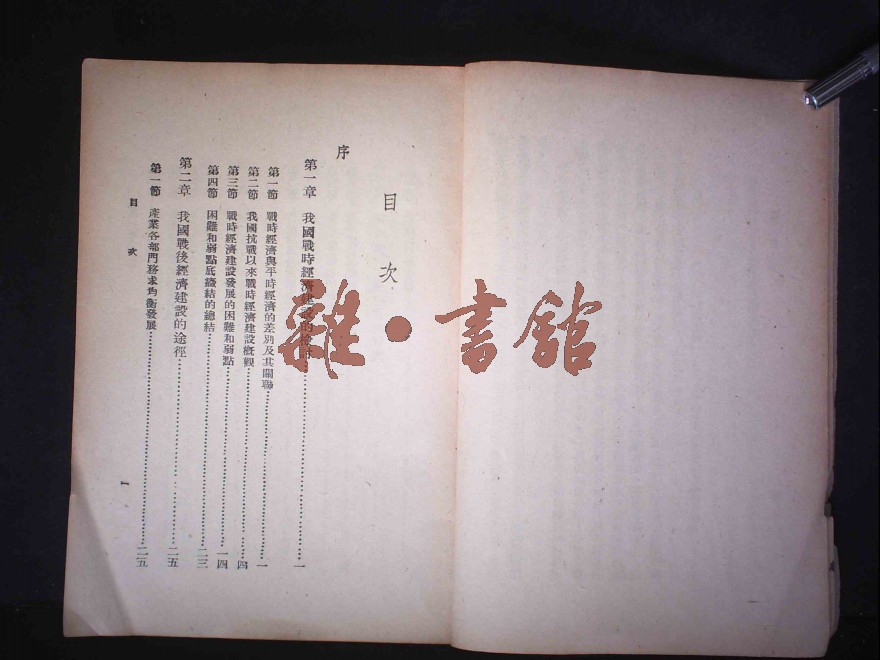 目次
序
第一章 我國戰時經濟建設的……一
第一節 戰時經濟與平時經濟的差別及其關聯……一
第二節 我國抗戰以來戰時經濟建設概觀……四
第三節 戰時經濟建設發展的困難和弱點……一四
第四節 困難和弱點底癥結的總結……二三
第二章 我國戰後經濟建設的途徑……二五
第一節 產業各部門務求均衡發展……二五
目次
一
雜·書館